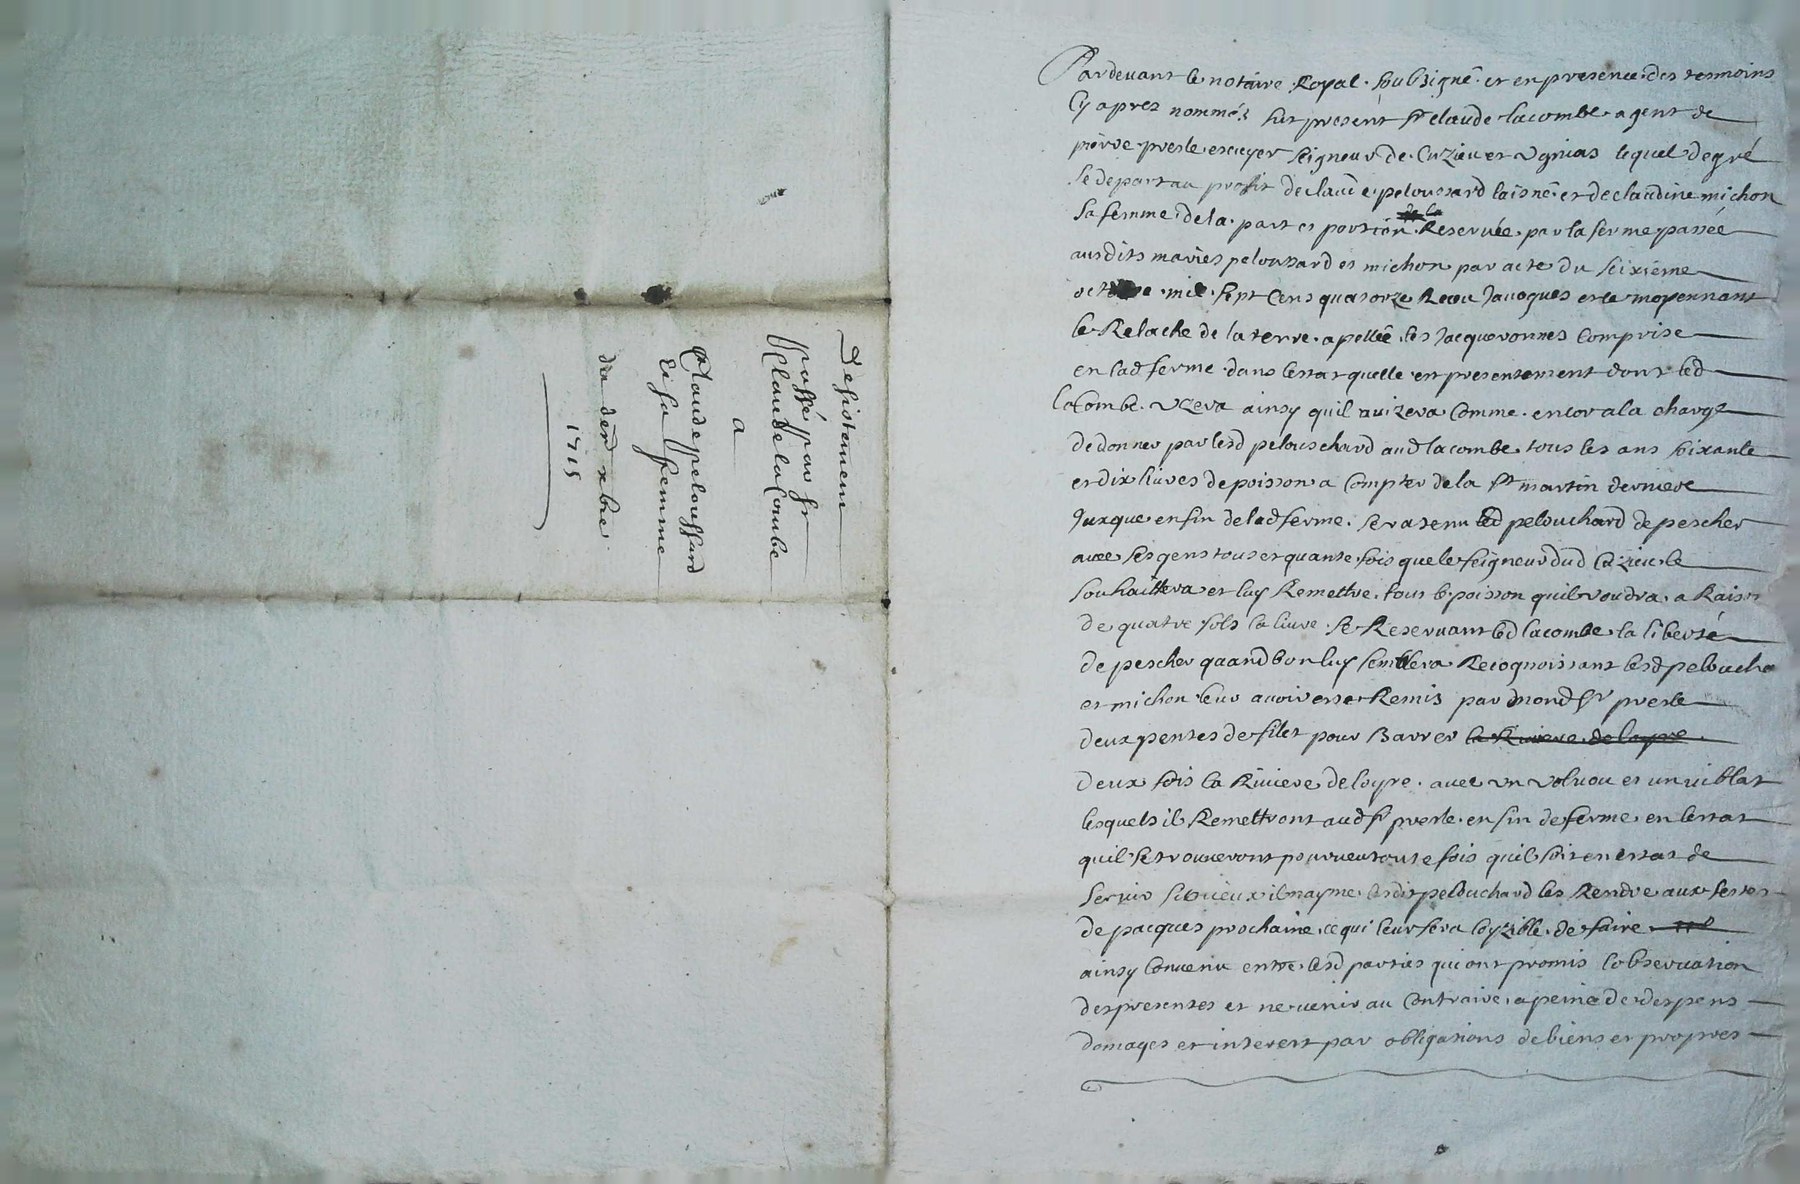 Desistement
passé par sr
Claude lacombe
a
Claude peloussard
et sa femme
du 1715
Pardevant le notaire Royal soubsigné et en presence des tesmoins
Cy apres nommés fut present sr claude lacombe agent de
pierre presle escuyer seigneur de Cuzieu et Unias lequel de gré
se depart au profit de claude peloussard laisné et de claudine michon
sa femme de la part et portion de la Reservée par la ferme passée
ausdits mariés peloussard et michon par acte du seixiéme
octobre mil sept Cens quatorze Receu Jacques et ce moyennant
le Relache de la terre apellée les Jacquevonnes Comprise
en lad ferme dans lestat quelle est presentement dont led
lacombe Uzera ainsy quil auizera Comme encor a la charge
de donner par lesd pelouschard aud lacombe tous les ans soixante
et dix livres de poisson a Compter de la st martin derniere
Jusque en fin de lad ferme sera tenu led pelouchard de pescher
avec ses gens tous et quante fois que le seigneur dud Cuzieu le
souhaittera et luy Remettre tous le poisson quil voudra a Raison
de quatre sols la livre se Reservant led lacombe la liberté
de pescher quand bon luy semblera Recognoissant lesd pelouchard
et michon leur avoir esté Remis par mond sr presle
deux pentes de filet pour Barrer la Riviere de loyre
deux fois la Riviere de loyre avec un et un
lesquels il Remettront aud sr presle en fin de ferme en lestat
quil se trouveront pourveu toute fois quil soit en estat de
servir si mieux il nayme lesdit pelouchard les Rendre aux festes
de pacques prochaine ce qui leur sera loyzible de faire
ainsy Convenu entre lesd parties qui ont promis lobservation
des presentes et ne venir au Contraire a peine de despens
domages et interest par obligations de biens et propres